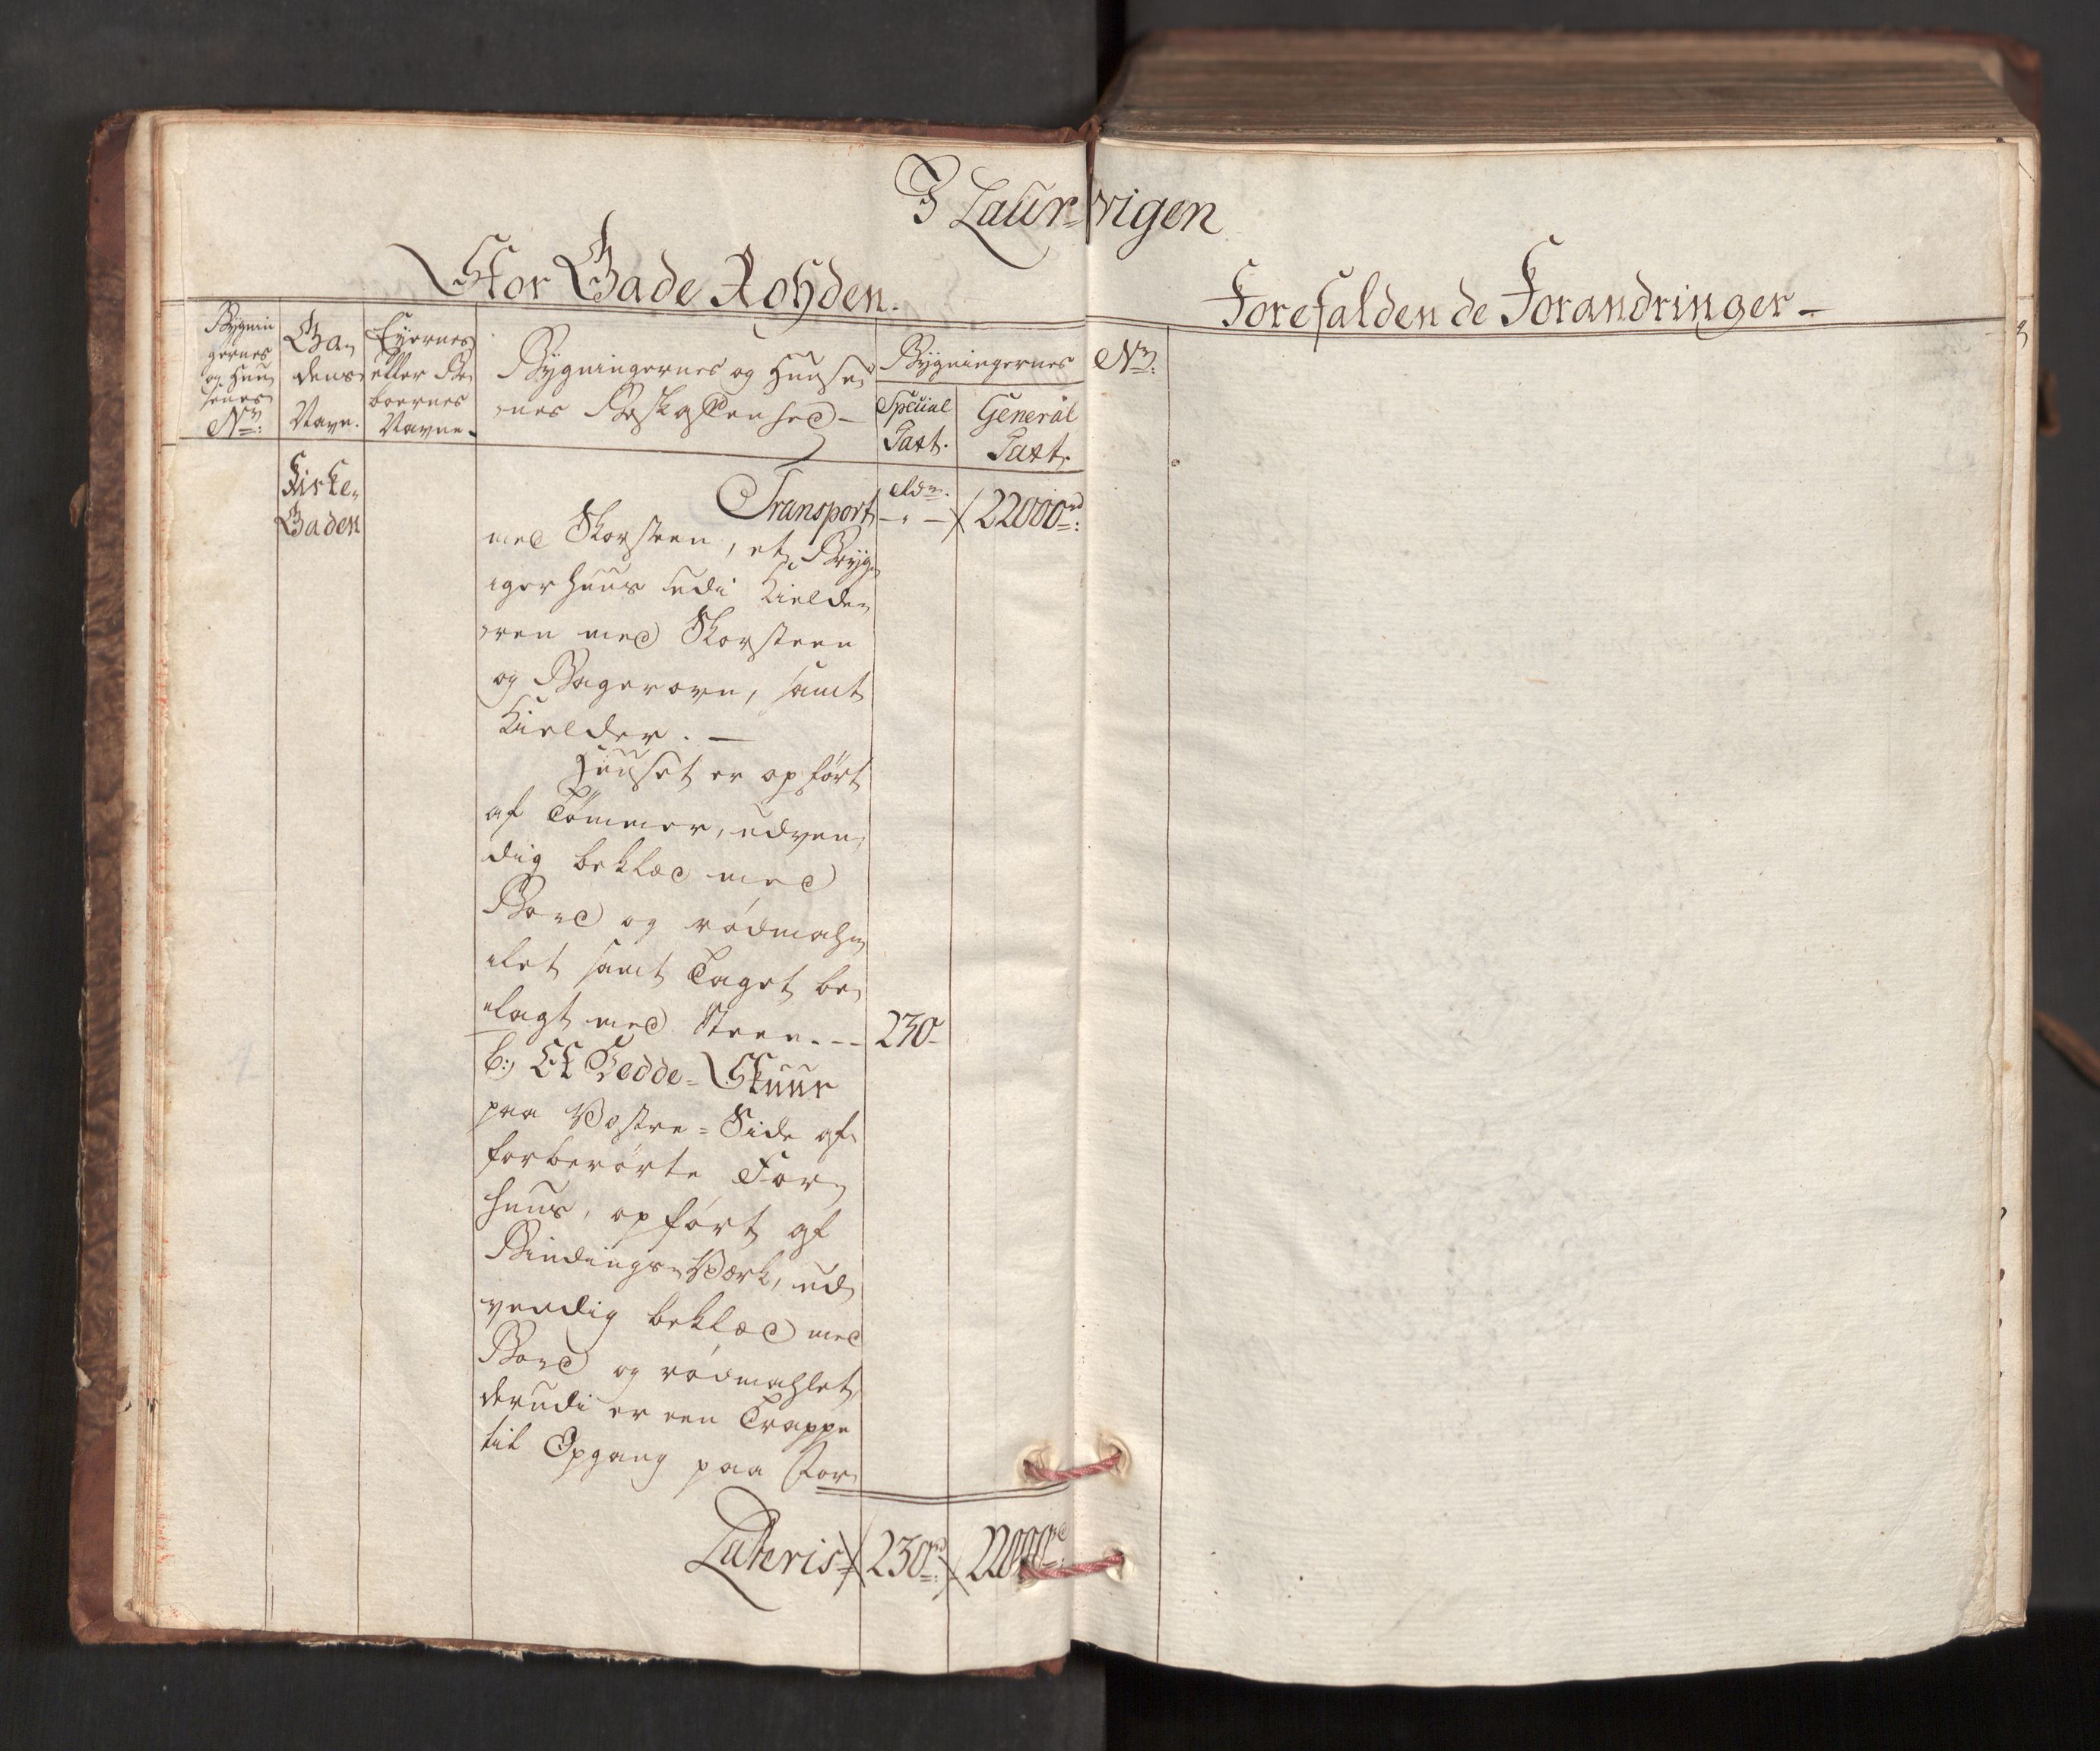 I Laur=vigen
Stor Gade Rohden.
Forefaldende Forandringer -
Bygnin
gernes
og Huu
senes
No:
Ga-
dens
Navn.
Eyernes
eller Be
boernes
Navne.
Bygningernes og Huuse-
nes Beskaffenhed -
Bygningernes
Special
Taxt.
General
Taxt.
No:
Kirke-
Gaden
Transport Rdr. - " - 22000rd:
med Skorsteen, et Bryg-
gerhuus udi Kielde-
ren med Skorsteen
og Bagerovn, samt
Kielder. -
Huuset er opført
af Tømmer, udven-
dig beklæd med
Bord og rødmahl-
let samt Taget be-
lagt med Steen. - - 230-
b:, Et Bedde=Skuur
paa Vestre=Side af
forberørte For-
huus, opført af
Bindings-Værk, ud-
vendig beklæd med
Bord og rødmahlet
derudi er een Trappe
til Opgang paa For-
Lateris 230rd: 22000rd: